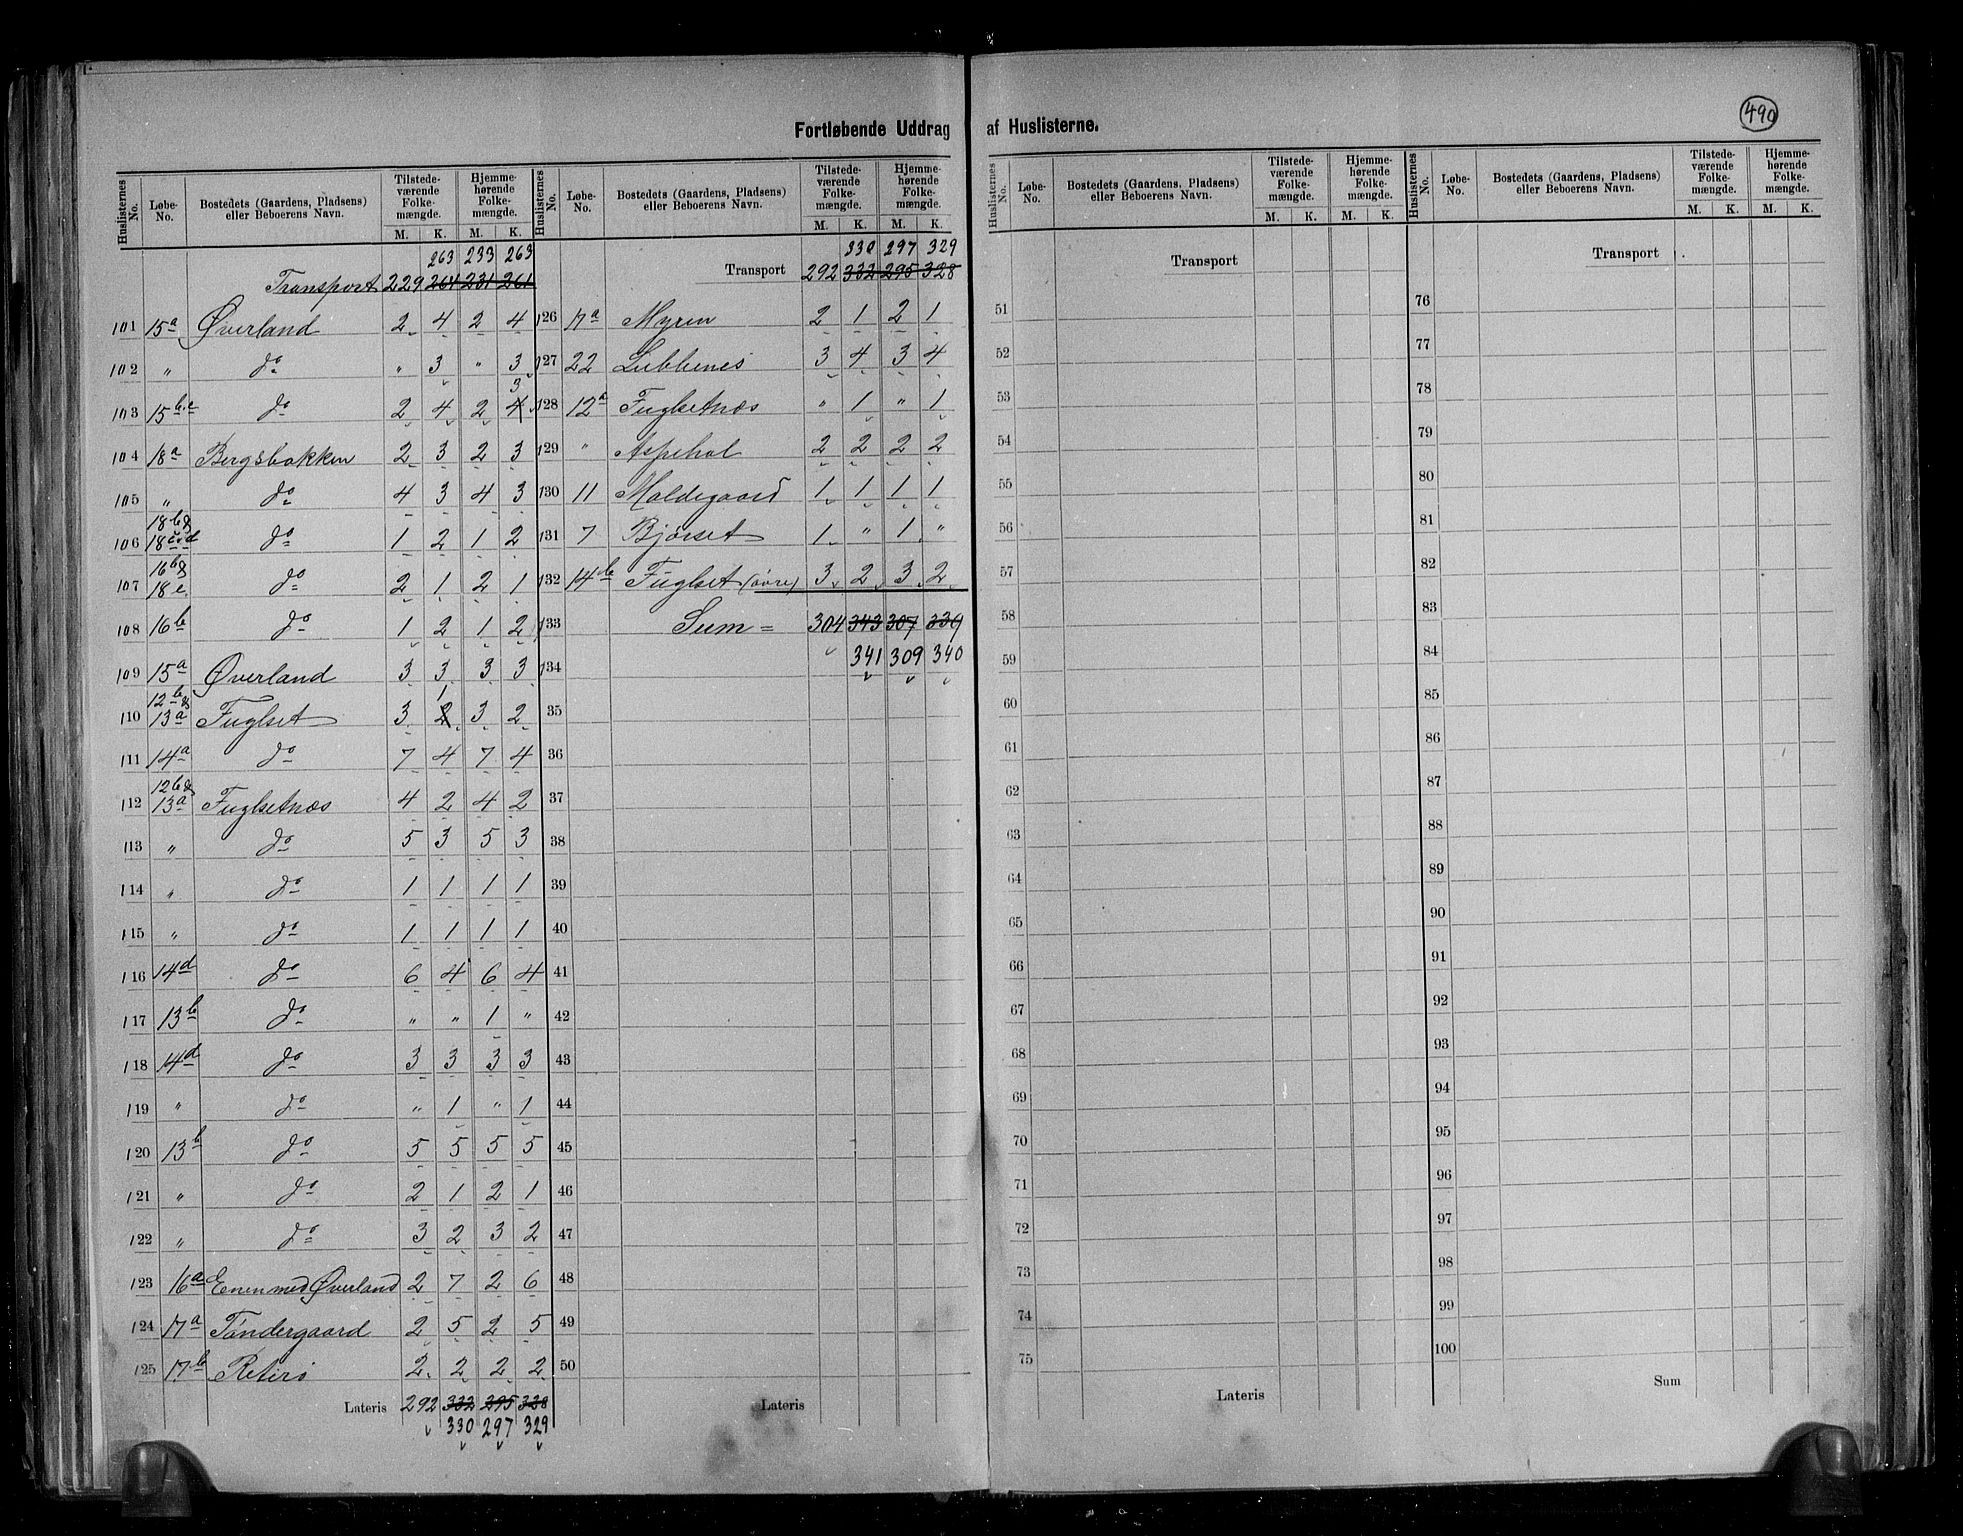 490
Fortløbende Uddrag af Huslisterne.
Huslisternes No. Løbe-No. Bostedets (Gaardens, Pladsens) eller Beboerens Navn. Tilstede-værende Folke-mængde. M. K. Hjemme-hørende Folke-mængde. M. K.
263 233 263
Transport 229 264 231 261
101 15a Øverland 2 4 2 4
102 " do " 3 " 3
3
103 15b.c do 2 4 2 4
104 18a Bergsbakken 2 3 2 3
105 " do 4 3 4 3
18b &
106 18c.d do 1 2 1 2
16b &
107 18e do 2 1 2 1
108 16b do 1 2 1 2
109 15a Øverland 3 3 3 3
12b & 1
110 13a Fuglset 3 2 3 2
111 14a do 7 4 7 4
12b &
112 13a Fuglsetnæs 4 2 4 2
113 " do 5 3 5 3
114 " do 1 1 1 1
115 " do 1 1 1 1
116 14d do 6 4 6 4
117 13b do " " 1 "
118 14d do 3 3 3 3
119 " do " 1 " 1
120 13b do 5 5 5 5
121 " do 2 1 2 1
122 " do 3 2 3 2
123 16a Enenmed Øverland 2 7 2 6
124 17a Tøndergaard 2 5 2 5
125 17b Retirø 2 2 2 2
Lateris 292 332 295 328
330 297 329
Huslisternes No. Løbe-No. Bostedets (Gaardens, Pladsens) eller Beboerens Navn. Tilstede-værende Folke-mængde. M. K. Hjemme-hørende Folke-mængde. M. K.
330 297 329
Transport 292 332 295 328
126 17a Myren 2 1 2 1
127 22 Lubbenes 3 4 3 4
128 12a Fuglsetnæs " 1 " 1
129 " Aspehol 2 2 2 2
130 11 Moldegaard 1 1 1 1
131 7 Bjørset 1 " 1 "
132 14b Fuglset (øvre) 3 2 3 2
133 Sum = 304 343 307 339
341 309 340
134
35
36
37
38
39
40
41
42
43
44
45
46
47
48
49
50
Lateris
Huslisternes No. Løbe-No. Bostedets (Gaardens, Pladsens) eller Beboerens Navn. Tilstede-værende Folke-mængde. M. K. Hjemme-hørende Folke-mængde. M. K.
Transport
51
52
53
54
55
56
57
58
59
60
61
62
63
64
65
66
67
68
69
70
71
72
73
74
75
Lateris
Huslisternes No. Løbe-No. Bostedets (Gaardens, Pladsens) eller Beboerens Navn. Tilstede-værende Folke-mængde. M. K. Hjemme-hørende Folke-mængde. M. K.
Transport
76
77
78
79
80
81
82
83
84
85
86
87
88
89
90
91
92
93
94
95
96
97
98
99
100
Sum